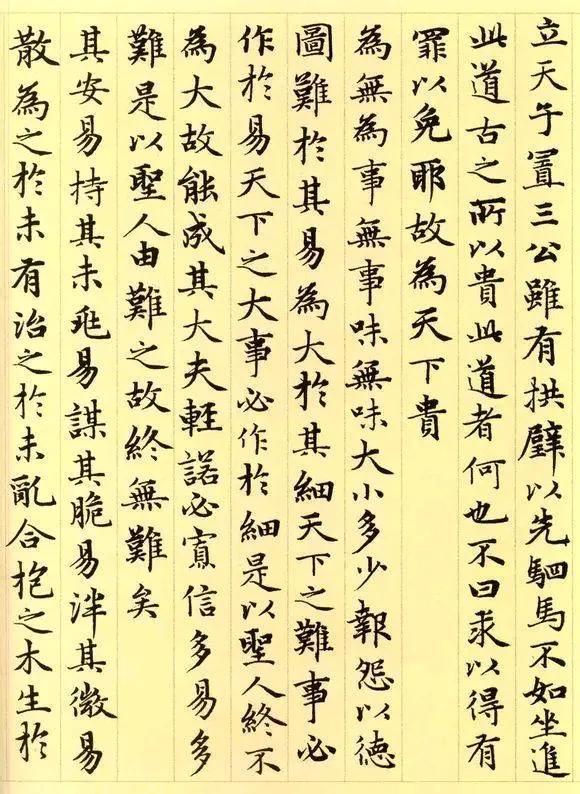 立天子置三公雖有拱璧以先駟馬不如坐進
此道古之所以貴此道者何也不曰求以得有
罪以免耶故為天下貴
為無為事無事味無味大小多少報怨以德
圖難於其易為大於其細天下之難事必
作於易天下之大事必作於細是以聖人終不
為大故能成其大夫輕諾必寡信多易多
難是以聖人由難之故終無難矣
其安易持其未兆易謀其脆易泮其微易
散為之於未有治之於未亂合抱之木生於